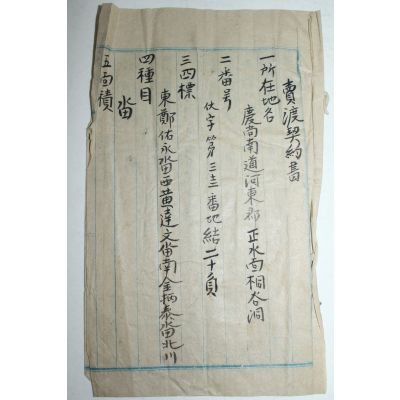 賣渡契約書
一所在地名
慶尚南道河東郡正水面桐谷洞
二番号
伏字第三三番地結二十負
三四標
東鄭佑永畓西黄達文畓南金柄泰畓北川
四種目
畓
五面積